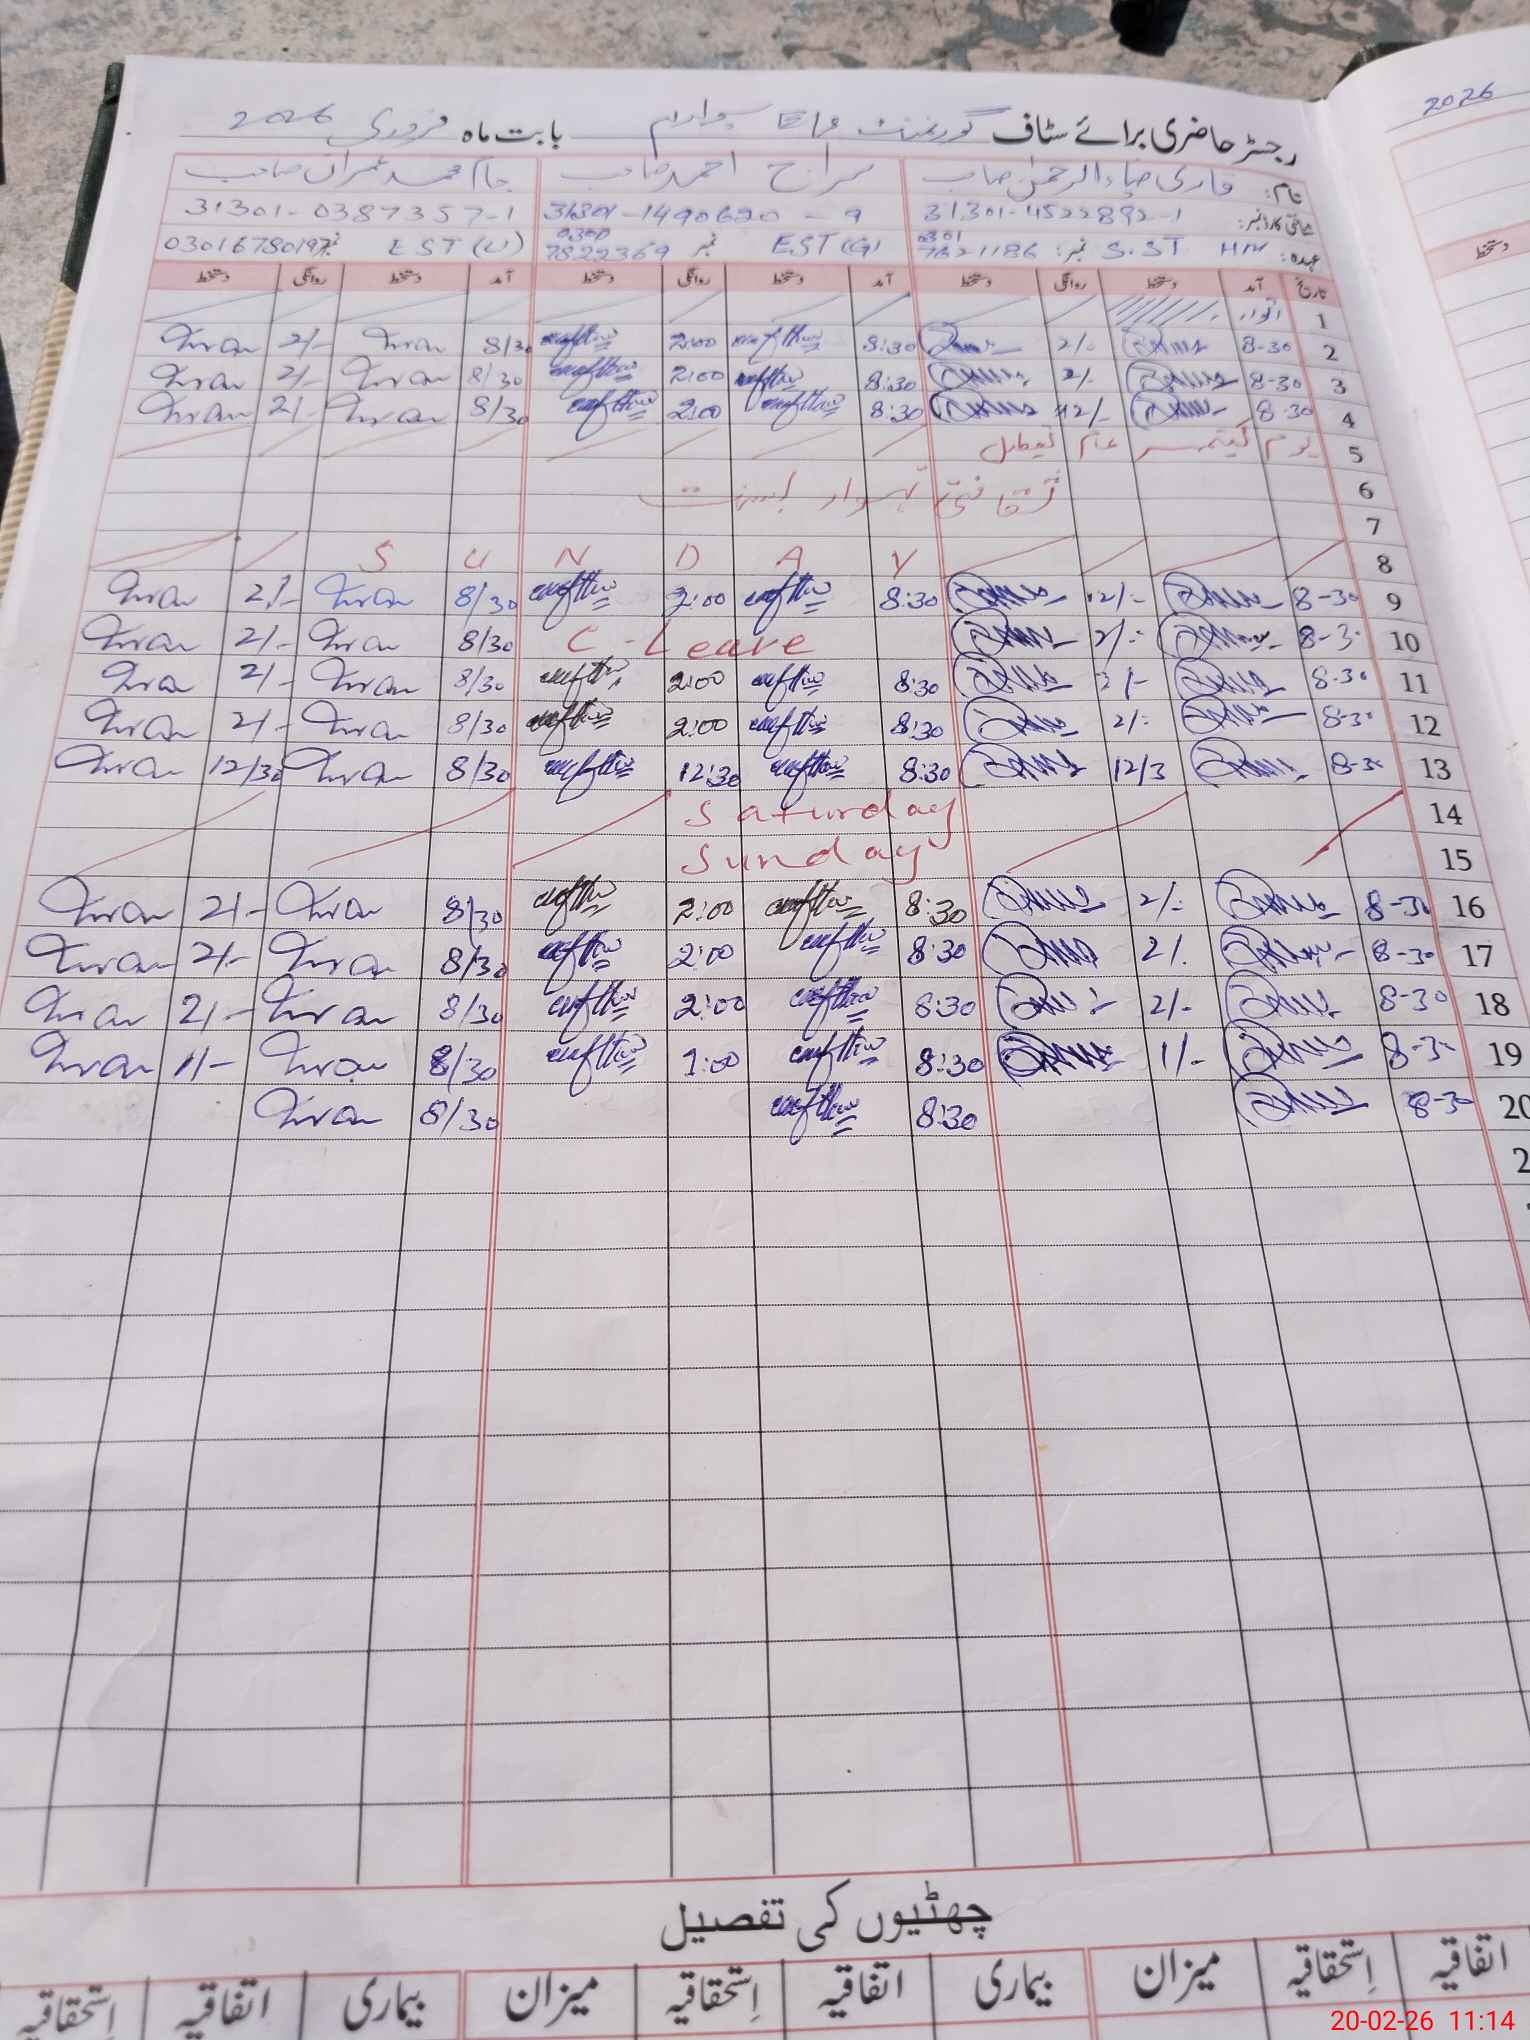 2026
رجسٹر حاضری برائے سٹاف گورنمنٹ بابت ماہ فروری 2026
نام: قاری ضیاء الرحمٰن صاحب سراج احمد صاحب جام محمد عمران صاحب
شناختی کارڈ نمبر: 31301-4522892-1 31301-1490620-9 31301-0387357-1
عہدہ: S.ST HM نمبر: 0301 7621186 EST (G) نمبر 0300 7822369 EST (U) نمبر 03016780197
تاریخ آمد دستخط روانگی دستخط آمد دستخط روانگی دستخط آمد دستخط روانگی دستخط
دستخط
1 اتوار
2 8-30 2/- 8:30 2:00 8/30 Imran 2/- Imran
3 8-30 2/- 8:30 2:00 8/30 Imran 2/- Imran
4 8-30 2/- 8:30 2:00 8/30 Imran 2/- Imran
5 یوم کشمیر عام تعطیل
6 ثقافتی تہوار بسنت
7
8 SUNDAY
9 8-30 2/- 8:30 2:00 8/30 Imran 2/- Imran
10 8-30 2/- C-Leave 8/30 Imran 2/- Imran
11 8-30 2/- 8:30 2:00 8/30 Imran 2/- Imran
12 8-30 2/- 8:30 2:00 8/30 Imran 2/- Imran
13 8-30 12/3 8:30 12:30 8/30 Imran 12/30 Imran
14 Saturday
15 Sunday
16 8-30 2/- 8:30 2:00 8/30 Imran 2/- Imran
17 8-30 2/- 8:30 2:00 8/30 Imran 2/- Imran
18 8-30 2/- 8:30 2:00 8/30 Imran 2/- Imran
19 8-30 1/- 8:30 1:00 8/30 Imran 1/- Imran
20 8-30 8:30 8/30 Imran
2
چھٹیوں کی تفصیل
اتفاقیہ اِستحقاقیہ میزان بیماری اتفاقیہ اِستحقاقیہ میزان بیماری اتفاقیہ اِستحقاقیہ
20-02-26 11:14